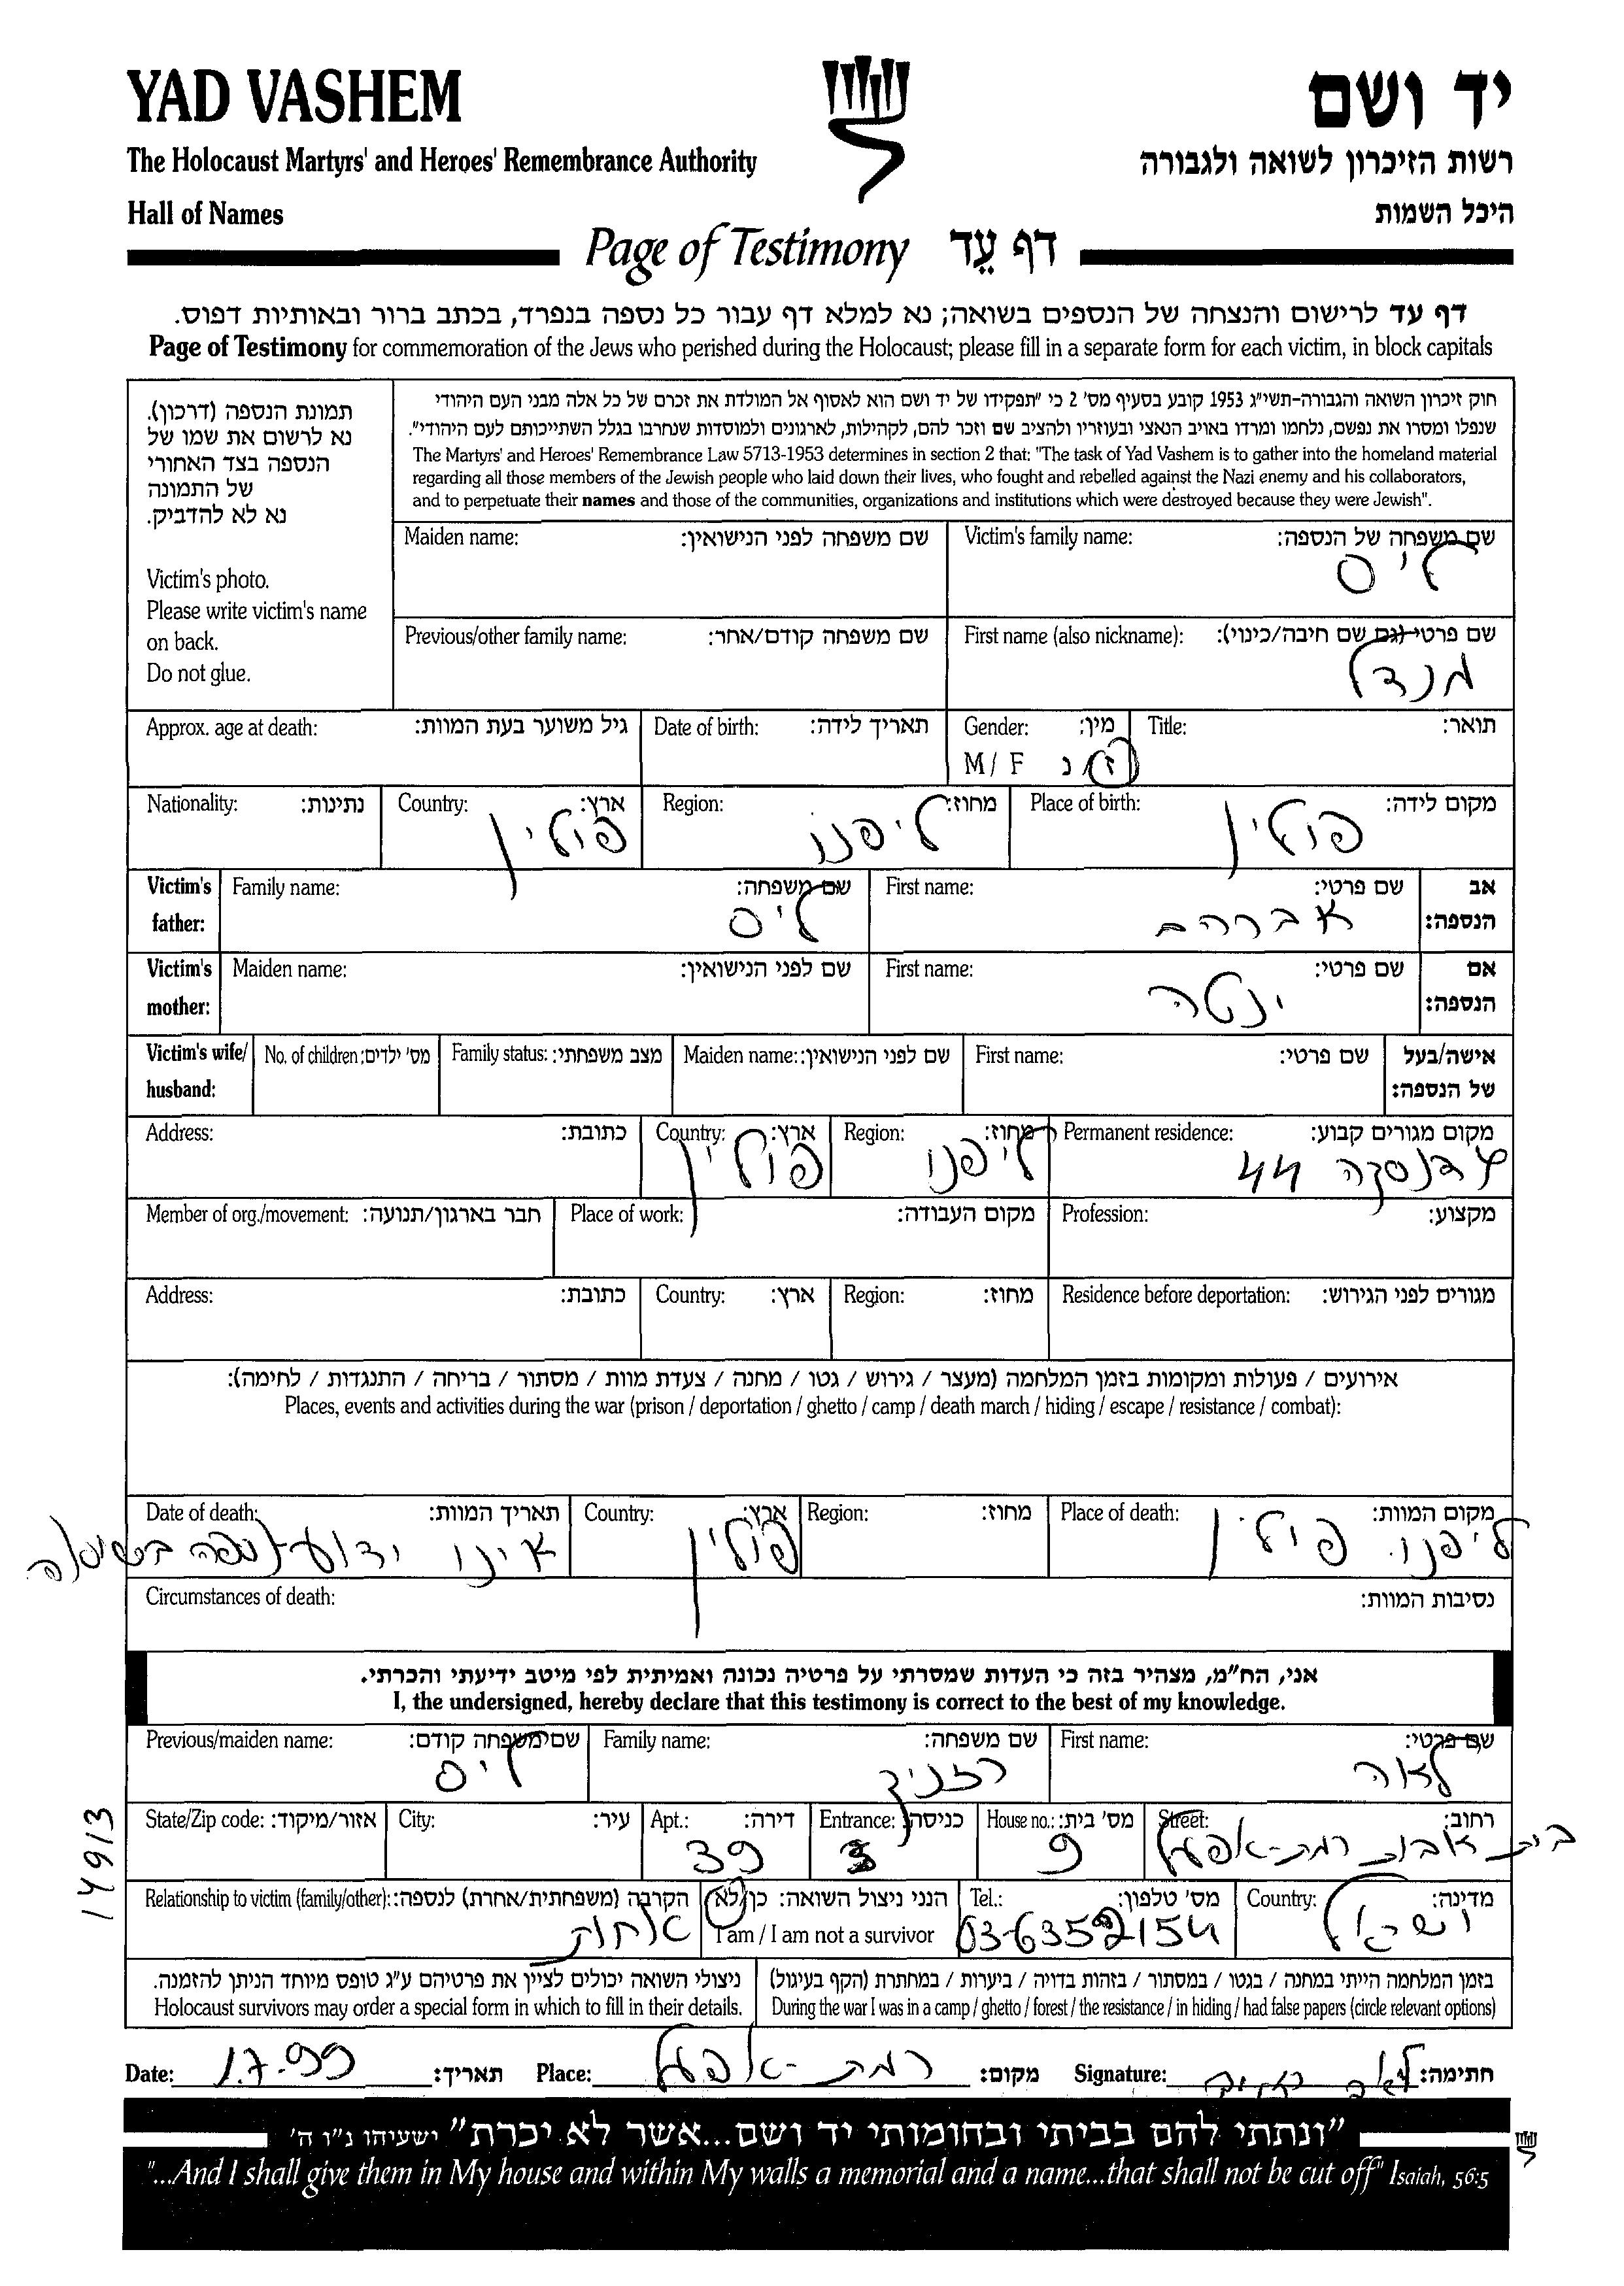 YAD VASHEM
יד ושם
The Holocaust Martyrs' and Heroes' Remembrance Authority
רשות הזיכרון לשואה ולגבורה
Hall of Names
היכל השמות
Page of Testimony דף עֵד
דף עד לרישום והנצחה של הנספים בשואה; נא למלא דף עבור כל נספה בנפרד, בכתב ברור ובאותיות דפוס.
Page of Testimony for commemoration of the Jews who perished during the Holocaust; please fill in a separate form for each victim, in block capitals
תמונת הנספה (דרכון).
נא לרשום את שמו של
הנספה בצד האחורי
של התמונה
נא לא להדביק.
Victim's photo.
Please write victim's name
on back.
Do not glue.
חוק זיכרון השואה והגבורה-תשי"ג 1953 קובע בסעיף מס' 2 כי "תפקידו של יד ושם הוא לאסוף אל המולדת את זכרם של כל אלה מבני העם היהודי
שנפלו ומסרו את נפשם, נלחמו ומרדו באויב הנאצי ובעוזריו ולהציב שם וזכר להם, לקהילות, לארגונים ולמוסדות שנחרבו בגלל השתייכותם לעם היהודי".
The Martyrs' and Heroes' Remembrance Law 5713-1953 determines in section 2 that: "The task of Yad Vashem is to gather into the homeland material
regarding all those members of the Jewish people who laid down their lives, who fought and rebelled against the Nazi enemy and his collaborators,
and to perpetuate their names and those of the communities, organizations and institutions which were destroyed because they were Jewish".
Victim's family name: שם משפחה של הנספה:
ליס
Maiden name: שם משפחה לפני הנישואין:
First name (also nickname): שם פרטי (גם שם חיבה/כינוי):
מנדל
Previous/other family name: שם משפחה קודם/אחר:
Title: תואר:
Gender: מין:
M / F ז/נ
Date of birth: תאריך לידה:
Approx. age at death: גיל משוער בעת המוות:
Place of birth: מקום לידה:
פולין
Region: מחוז:
ליפנו
Country: ארץ:
פולין
Nationality: נתינות:
Victim's father: אב הנספה:
First name: שם פרטי:
אברהם
Family name: שם משפחה:
ליס
Victim's mother: אם הנספה:
First name: שם פרטי:
ינטה
Maiden name: שם לפני הנישואין:
Victim's wife/husband: אישה/בעל של הנספה:
First name: שם פרטי:
Maiden name: שם לפני הנישואין:
Family status: מצב משפחתי:
No. of children: מס' ילדים:
Permanent residence: מקום מגורים קבוע:
44
Region: מחוז:
ליפנו
Country: ארץ:
פולין
Address: כתובת:
Profession: מקצוע:
Place of work: מקום העבודה:
Member of org./movement: חבר בארגון/תנועה:
Residence before deportation: מגורים לפני הגירוש:
Region: מחוז:
Country: ארץ:
Address: כתובת:
אירועים / פעולות ומקומות בזמן המלחמה (מעצר / גירוש / גטו / מחנה / צעדת מוות / מסתור / בריחה / התנגדות / לחימה):
Places, events and activities during the war (prison / deportation / ghetto / camp / death march / hiding / escape / resistance / combat):
Place of death: מקום המוות:
ליפנו. פולין
Region: מחוז:
Country: ארץ:
פולין
Date of death: תאריך המוות:
אינו ידוע-נספה בשואה
Circumstances of death: נסיבות המוות:
אני, הח"מ, מצהיר בזה כי העדות שמסרתי על פרטיה נכונה ואמיתית לפי מיטב ידיעתי והכרתי.
I, the undersigned, hereby declare that this testimony is correct to the best of my knowledge.
First name: שם פרטי:
לאה
Family name: שם משפחה:
רזניק
Previous/maiden name: שם משפחה קודם:
ליס
Street: רחוב:
בית אבות רמת-אפעל
House no.: מס' בית:
9
Entrance: כניסה:
3
Apt.: דירה:
39
City: עיר:
State/Zip code: אזור/מיקוד:
14913
Country: מדינה:
ישראל
Tel.: מס' טלפון:
03-6352154
הנני ניצול השואה: כן/לא
I am / I am not a survivor
Relationship to victim (family/other): הקרבה (משפחתית/אחרת) לנספה:
אחות
בזמן המלחמה הייתי במחנה / בגטו / במסתור / בזהות בדויה / ביערות / במחתרת (הקף בעיגול)
During the war I was in a camp / ghetto / forest / the resistance / in hiding / had false papers (circle relevant options)
ניצולי השואה יכולים לציין את פרטיהם ע"ג טופס מיוחד הניתן להזמנה.
Holocaust survivors may order a special form in which to fill in their details.
Date: 1.7.-99 תאריך: Place: רמת-אפעל מקום: Signature: לאה רזניק חתימה:
"ונתתי להם בביתי ובחומותי יד ושם...אשר לא יכרת" ישעיהו נ"ו ה'
"...And I shall give them in My house and within My walls a memorial and a name...that shall not be cut off" Isaiah, 56:5